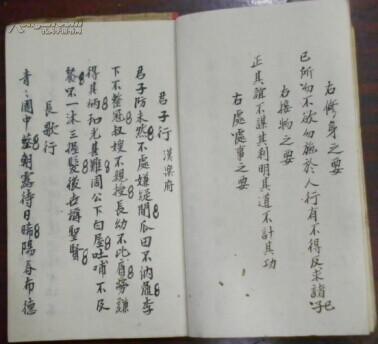 右修身之要
己所勿不欲勿施於人行有不得反求諸己
右接物之要
正其誼不謀其利明其道不計其功
右處處事之要
君子行 漢樂府
君子防未然不處嫌疑間瓜田不納履李
下不整冠叔嫂不親授長幼不比肩勞謙
得其柄和光甚難周公下白屋吐哺不及
餐一沐三握髮後世稱聖賢
長歌行
青々園中葵朝露待日晞陽春布德